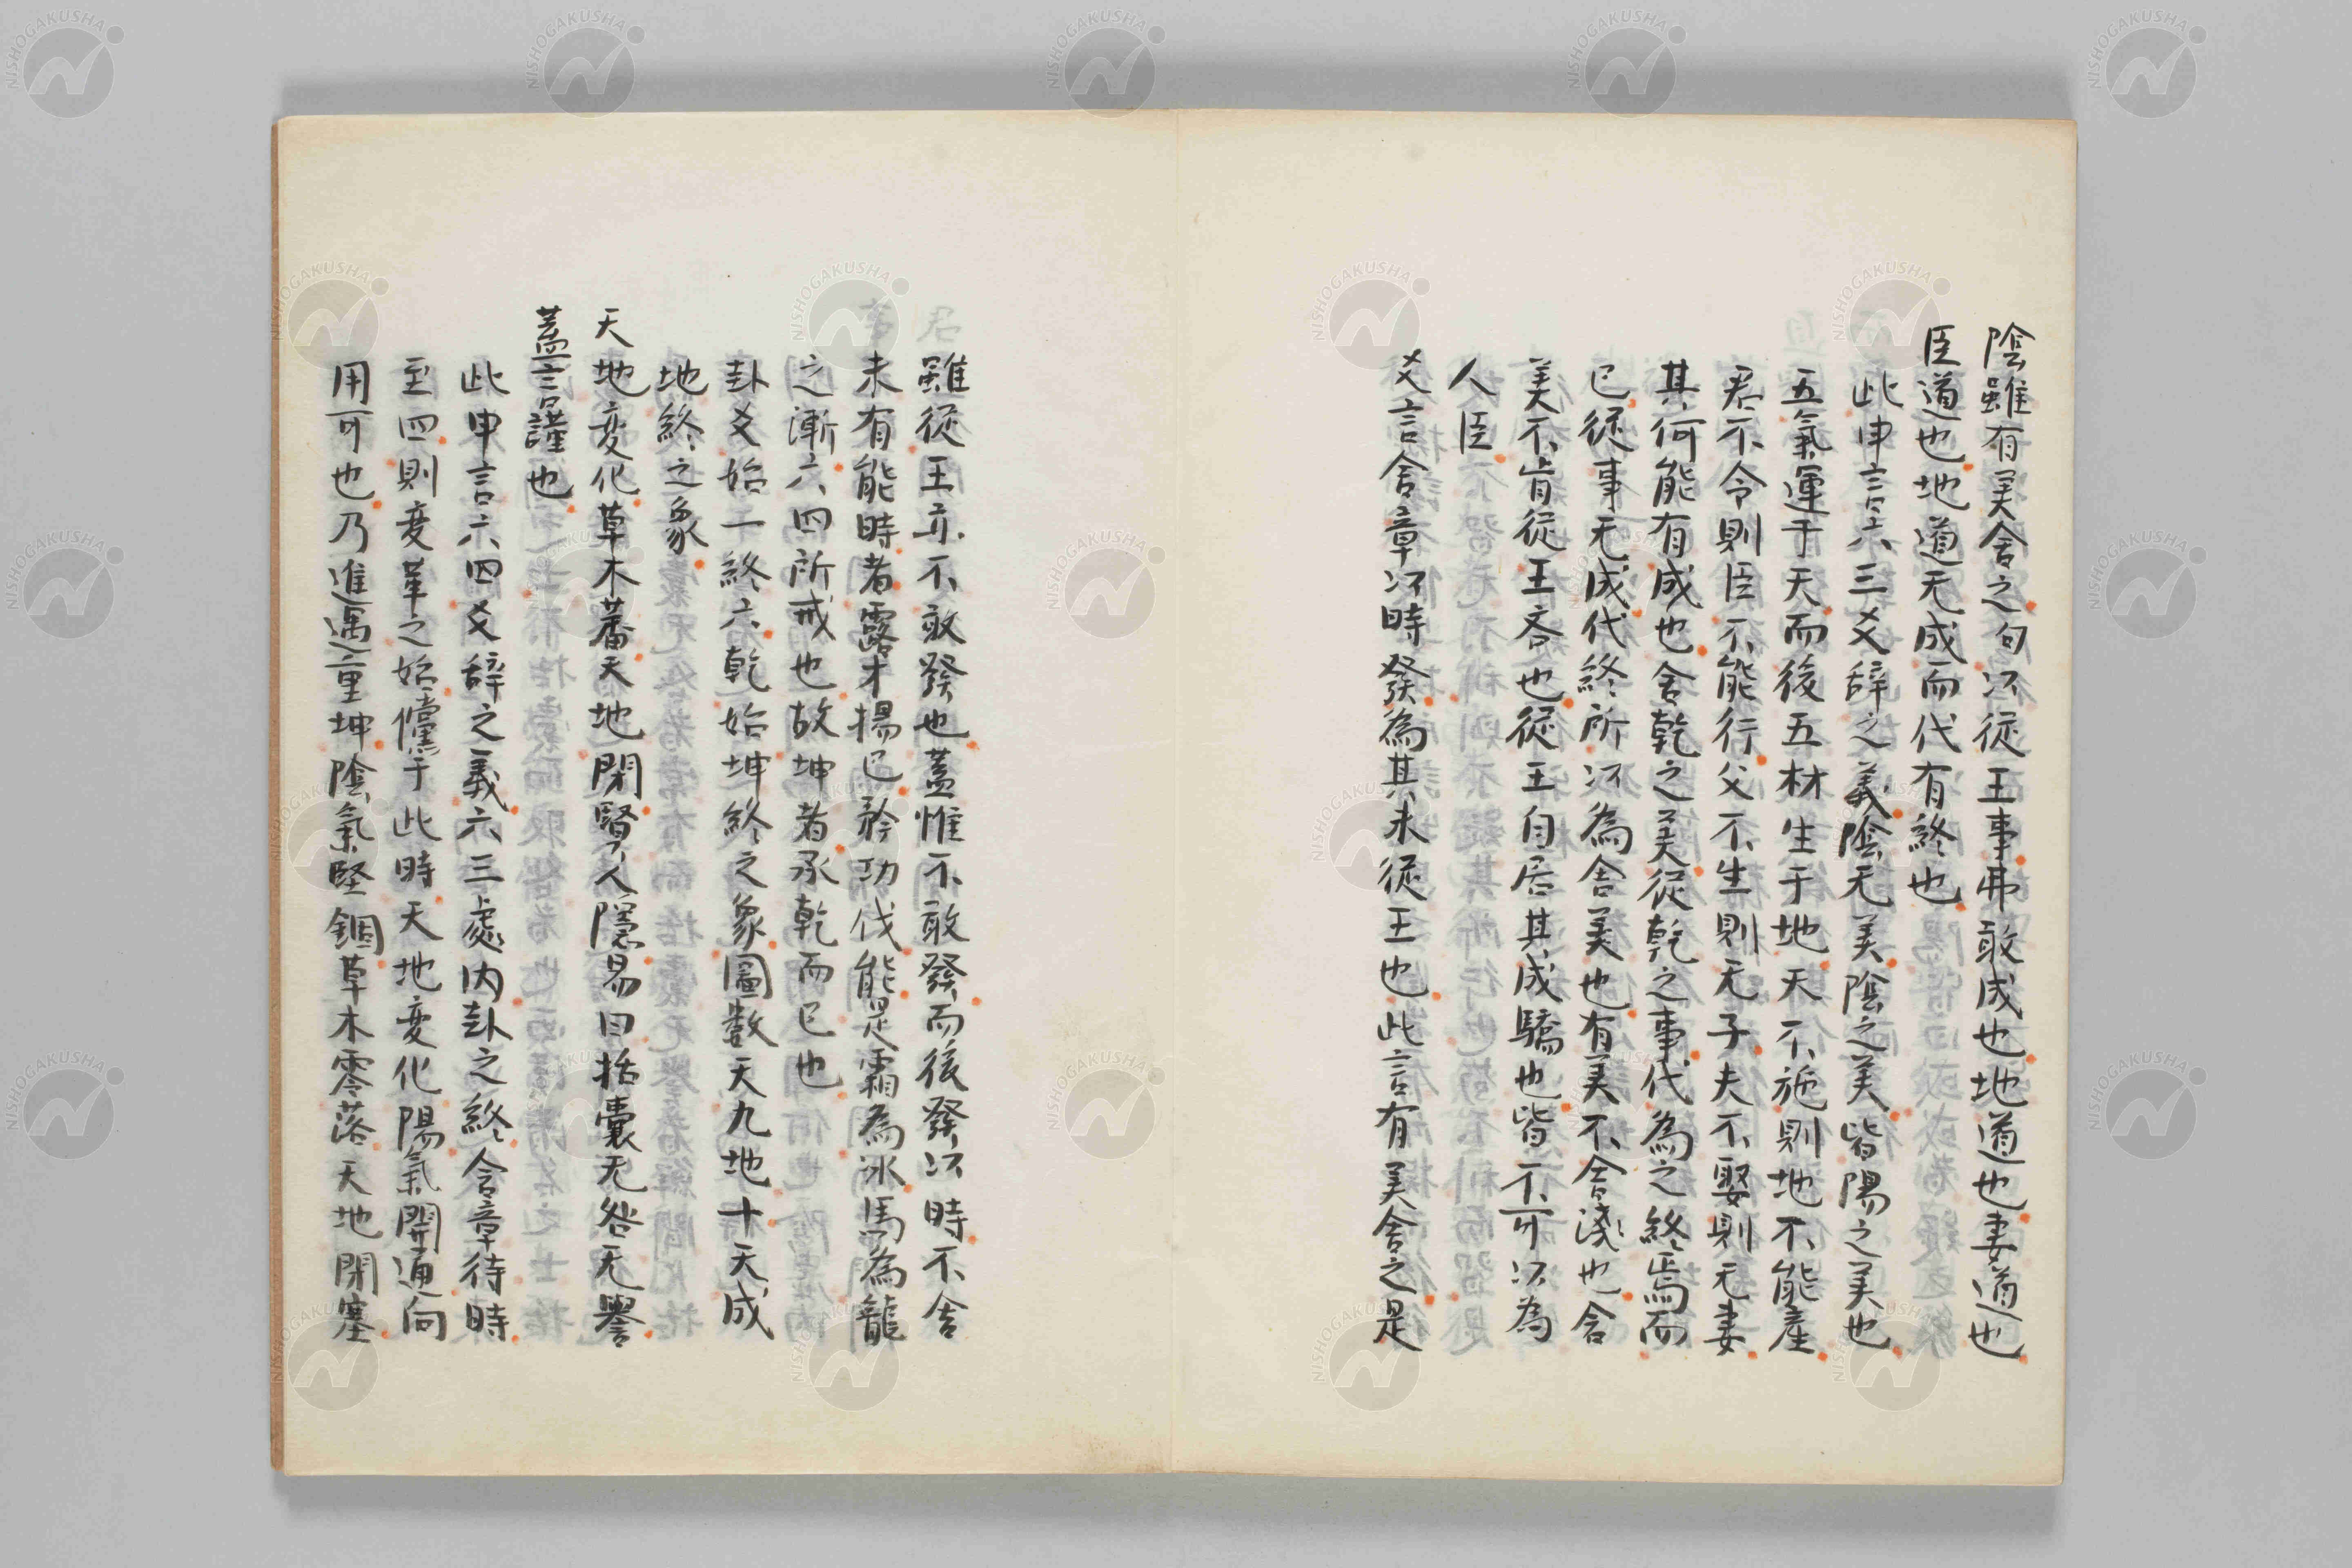 陰雖有美含之句以從王事弗敢成也地道也妻道也
臣道也地道无成而代有終也
此申言六三爻辞之義陰无美陰之美皆陽之美也
五氣運于天而後五材生于地天不施則地不能產
君不令則臣不能行父不生則无子夫不娶則无妻
其何能有成也含乾之美從乾之事代為之終焉而
已從事无成代終所以為含美也有美不含淺也含
美不肯從王吝也從王自居其成驕也皆不可以為
人臣
爻言含章以時發為其未從王也此言有美含之是
雖從王亦不敢發也蓋惟不敢發而後發以時不含
未有能時者露才揚己矜功伐能是霜為冰馬為龍
之漸六四所戒也故坤者承乾而已也
卦爻始一終六乾始坤終之象圖數天九地十天成
地終之象
天地変化草木蕃天地閉賢人隱易曰括囊无咎无譽
蓋言謹也
此申言六四爻辞之義六三處内卦之終含章待時
至四則变革之始儻于此時天地变化陽氣開通向
用可也乃進遇重坤陰氣堅錮草木零落天地閉塞
NISHOGAKUSHA